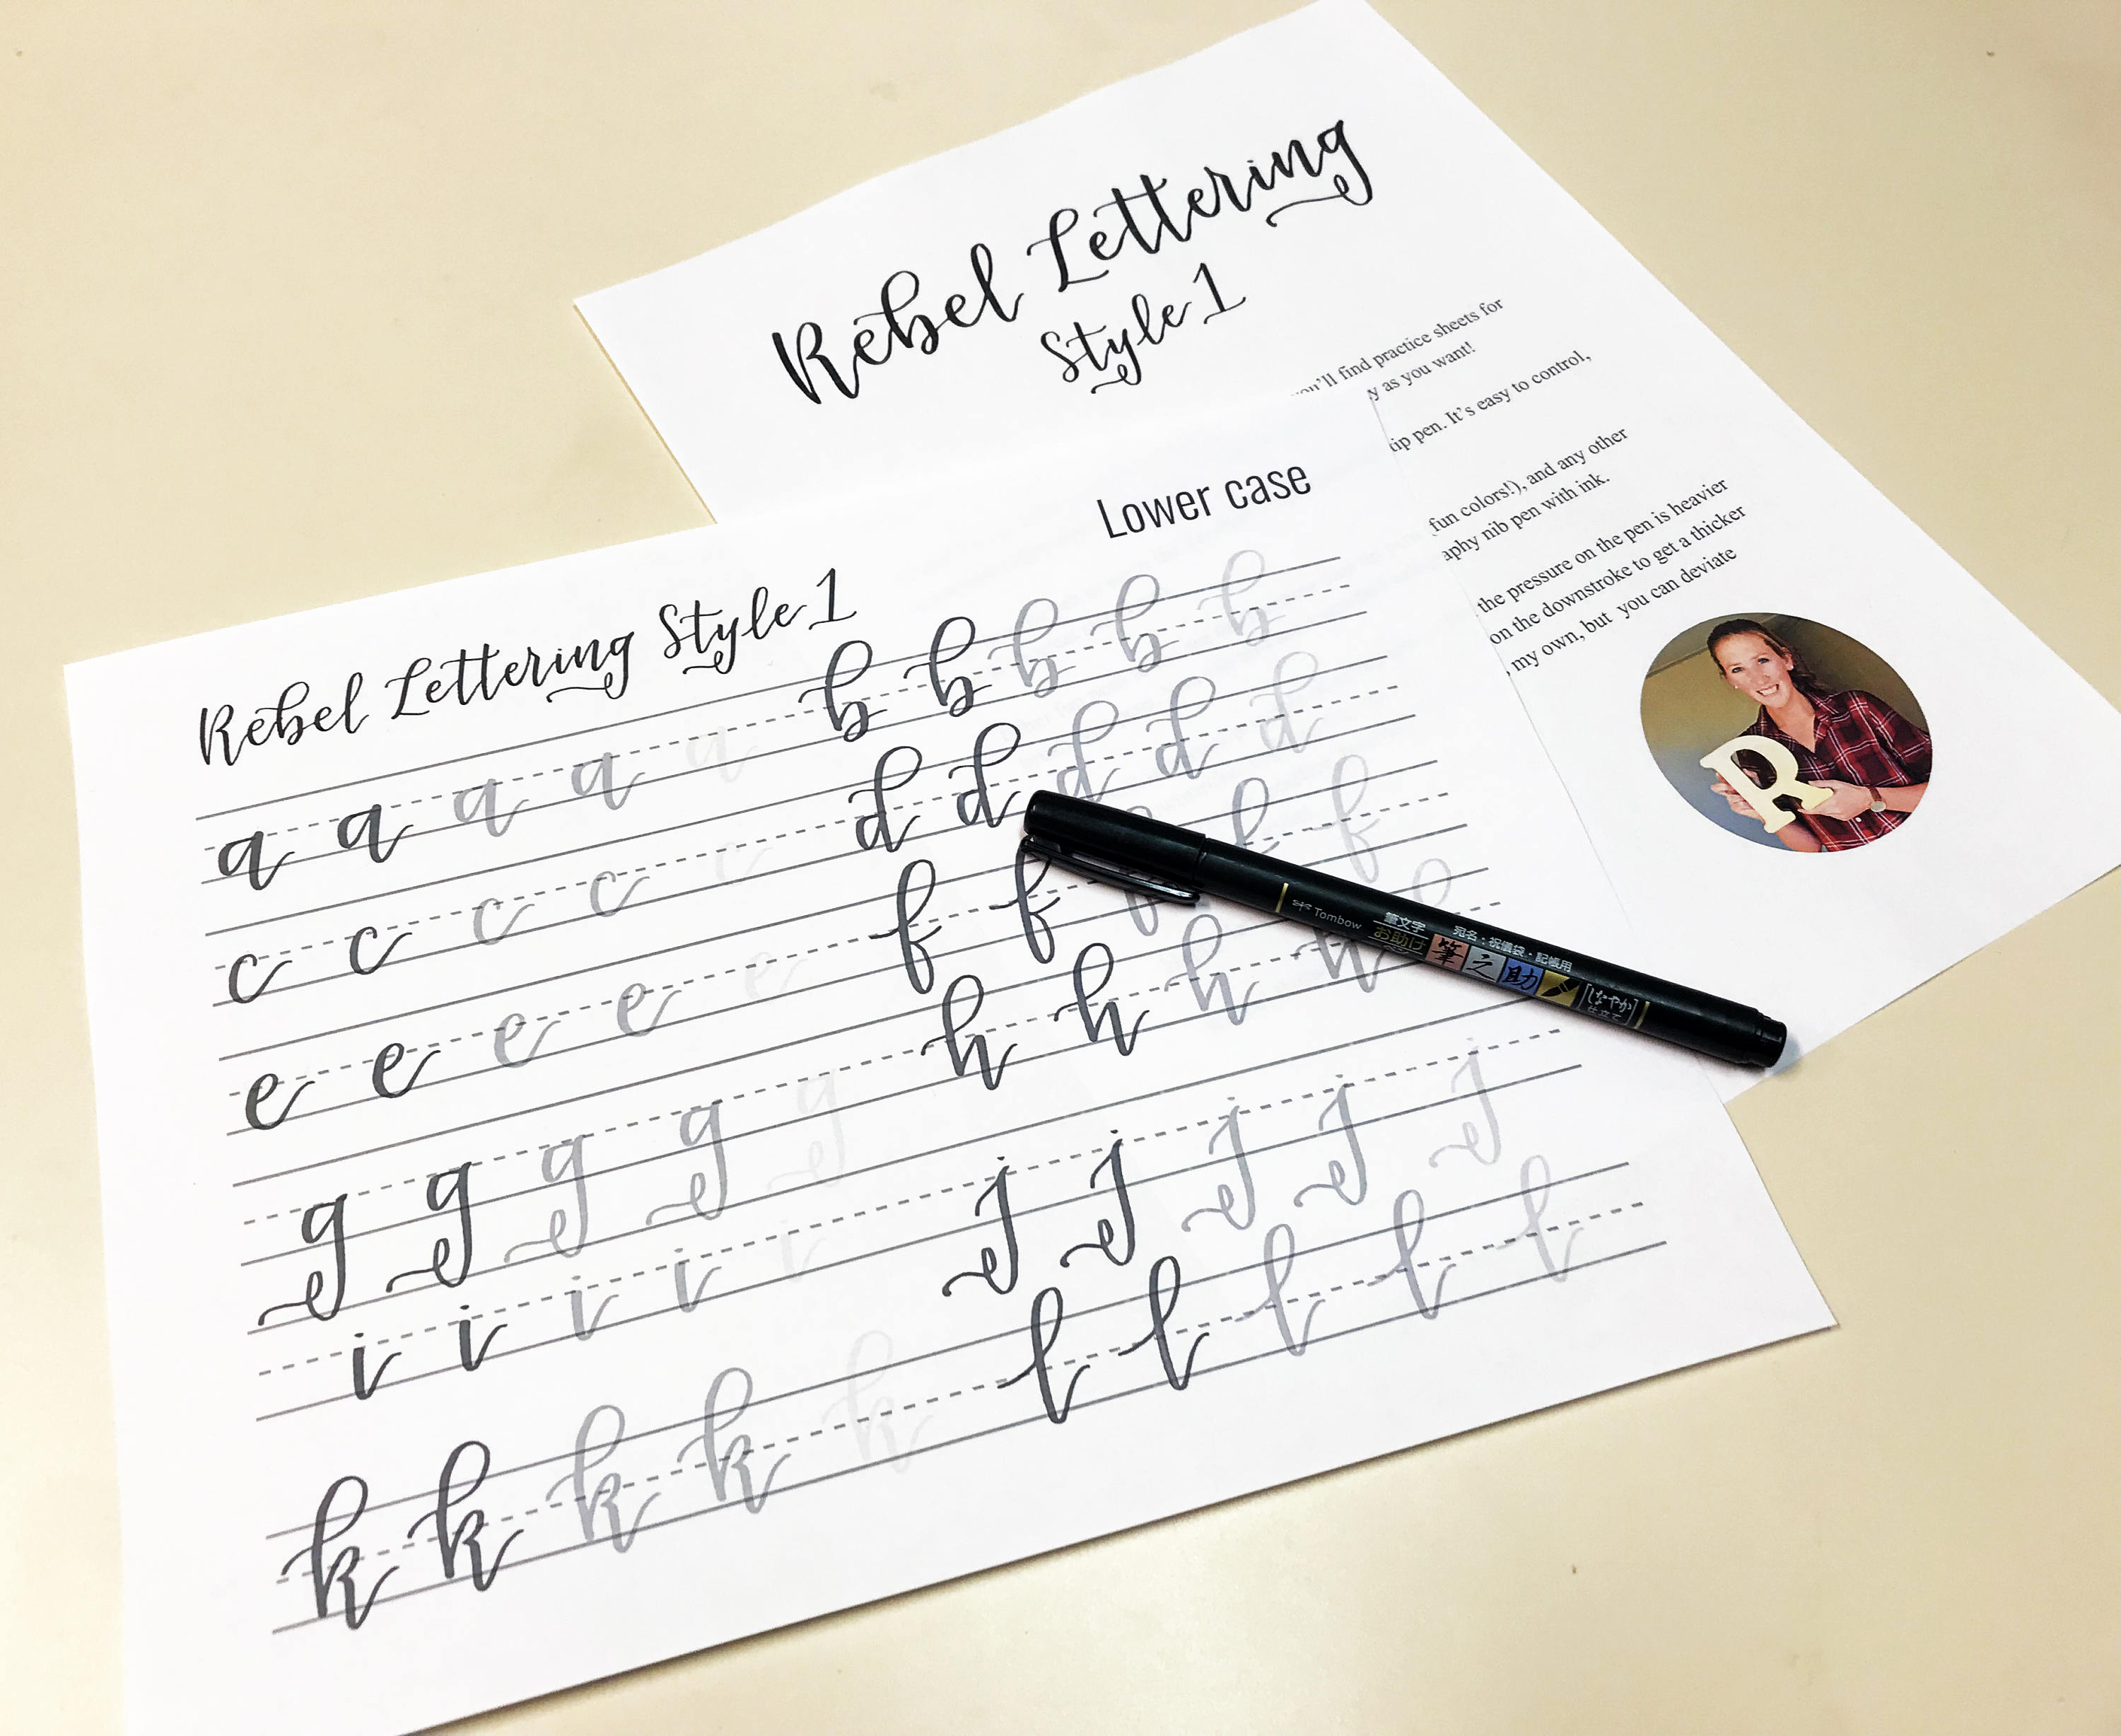 Rebel Lettering
Style 1
you'll find practice sheets for
as you want!
pen. It's easy to control,
fun colors!), and any other
nib pen with ink.
the pressure on the pen is heavier
on the downstroke to get a thicker
my own, but you can deviate
Lower case
Rebel Lettering Style 1
a a a a a b b b b b
c c c c c d d d d d
e e e e e f f f f f
g g g g g h h h h h
i i i i i j j j j j
k k k k k l l l l l
Tombow
筆文字
お助け
宛名・祝儀袋・記帳用
筆之助
しなやか
仕立て
R